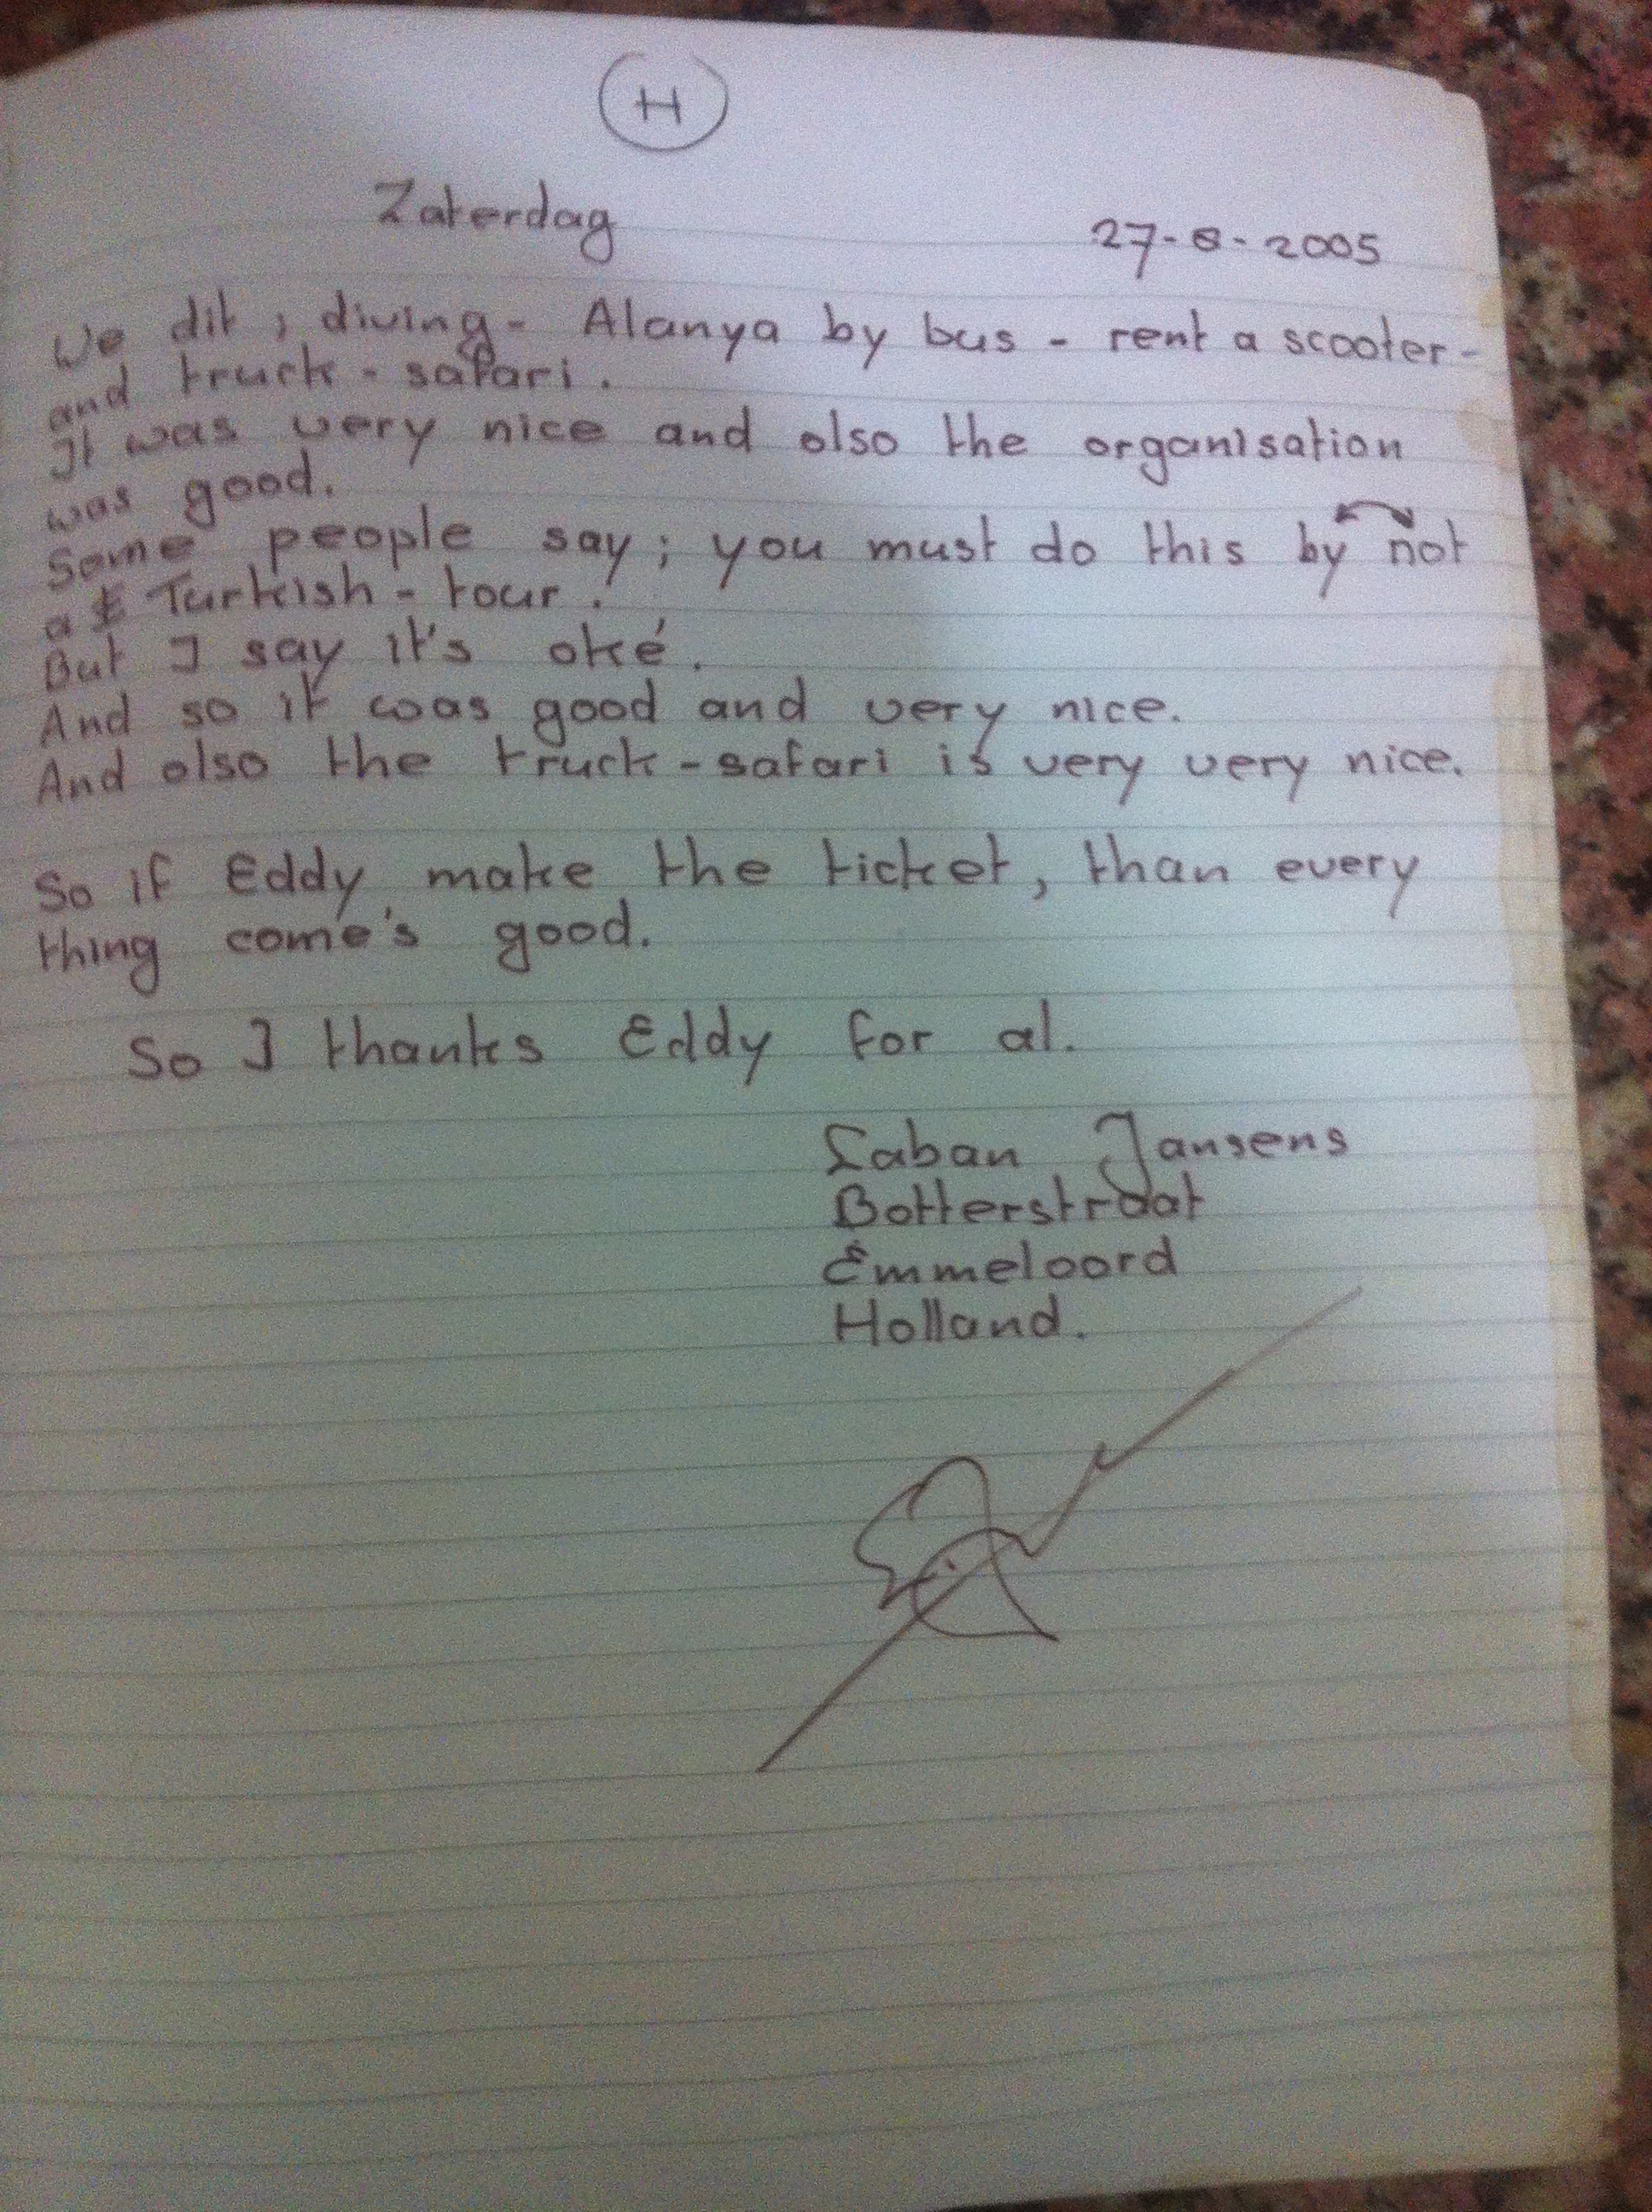 H
Zaterdag 27-8-2005
We dit ; diving - Alanya by bus - rent a scooter -
and truck - safari.
It was very nice and also the organisation
was good.
Some people say ; you must do this by not
a Turkish - tour.
But I say it's oké.
And so it was good and very nice.
And also the truck - safari is very very nice.
So if Eddy make the ticket, than every
thing come's good.
So I thanks Eddy for al.
Laban Jansens
Botterstraat
Emmeloord
Holland.